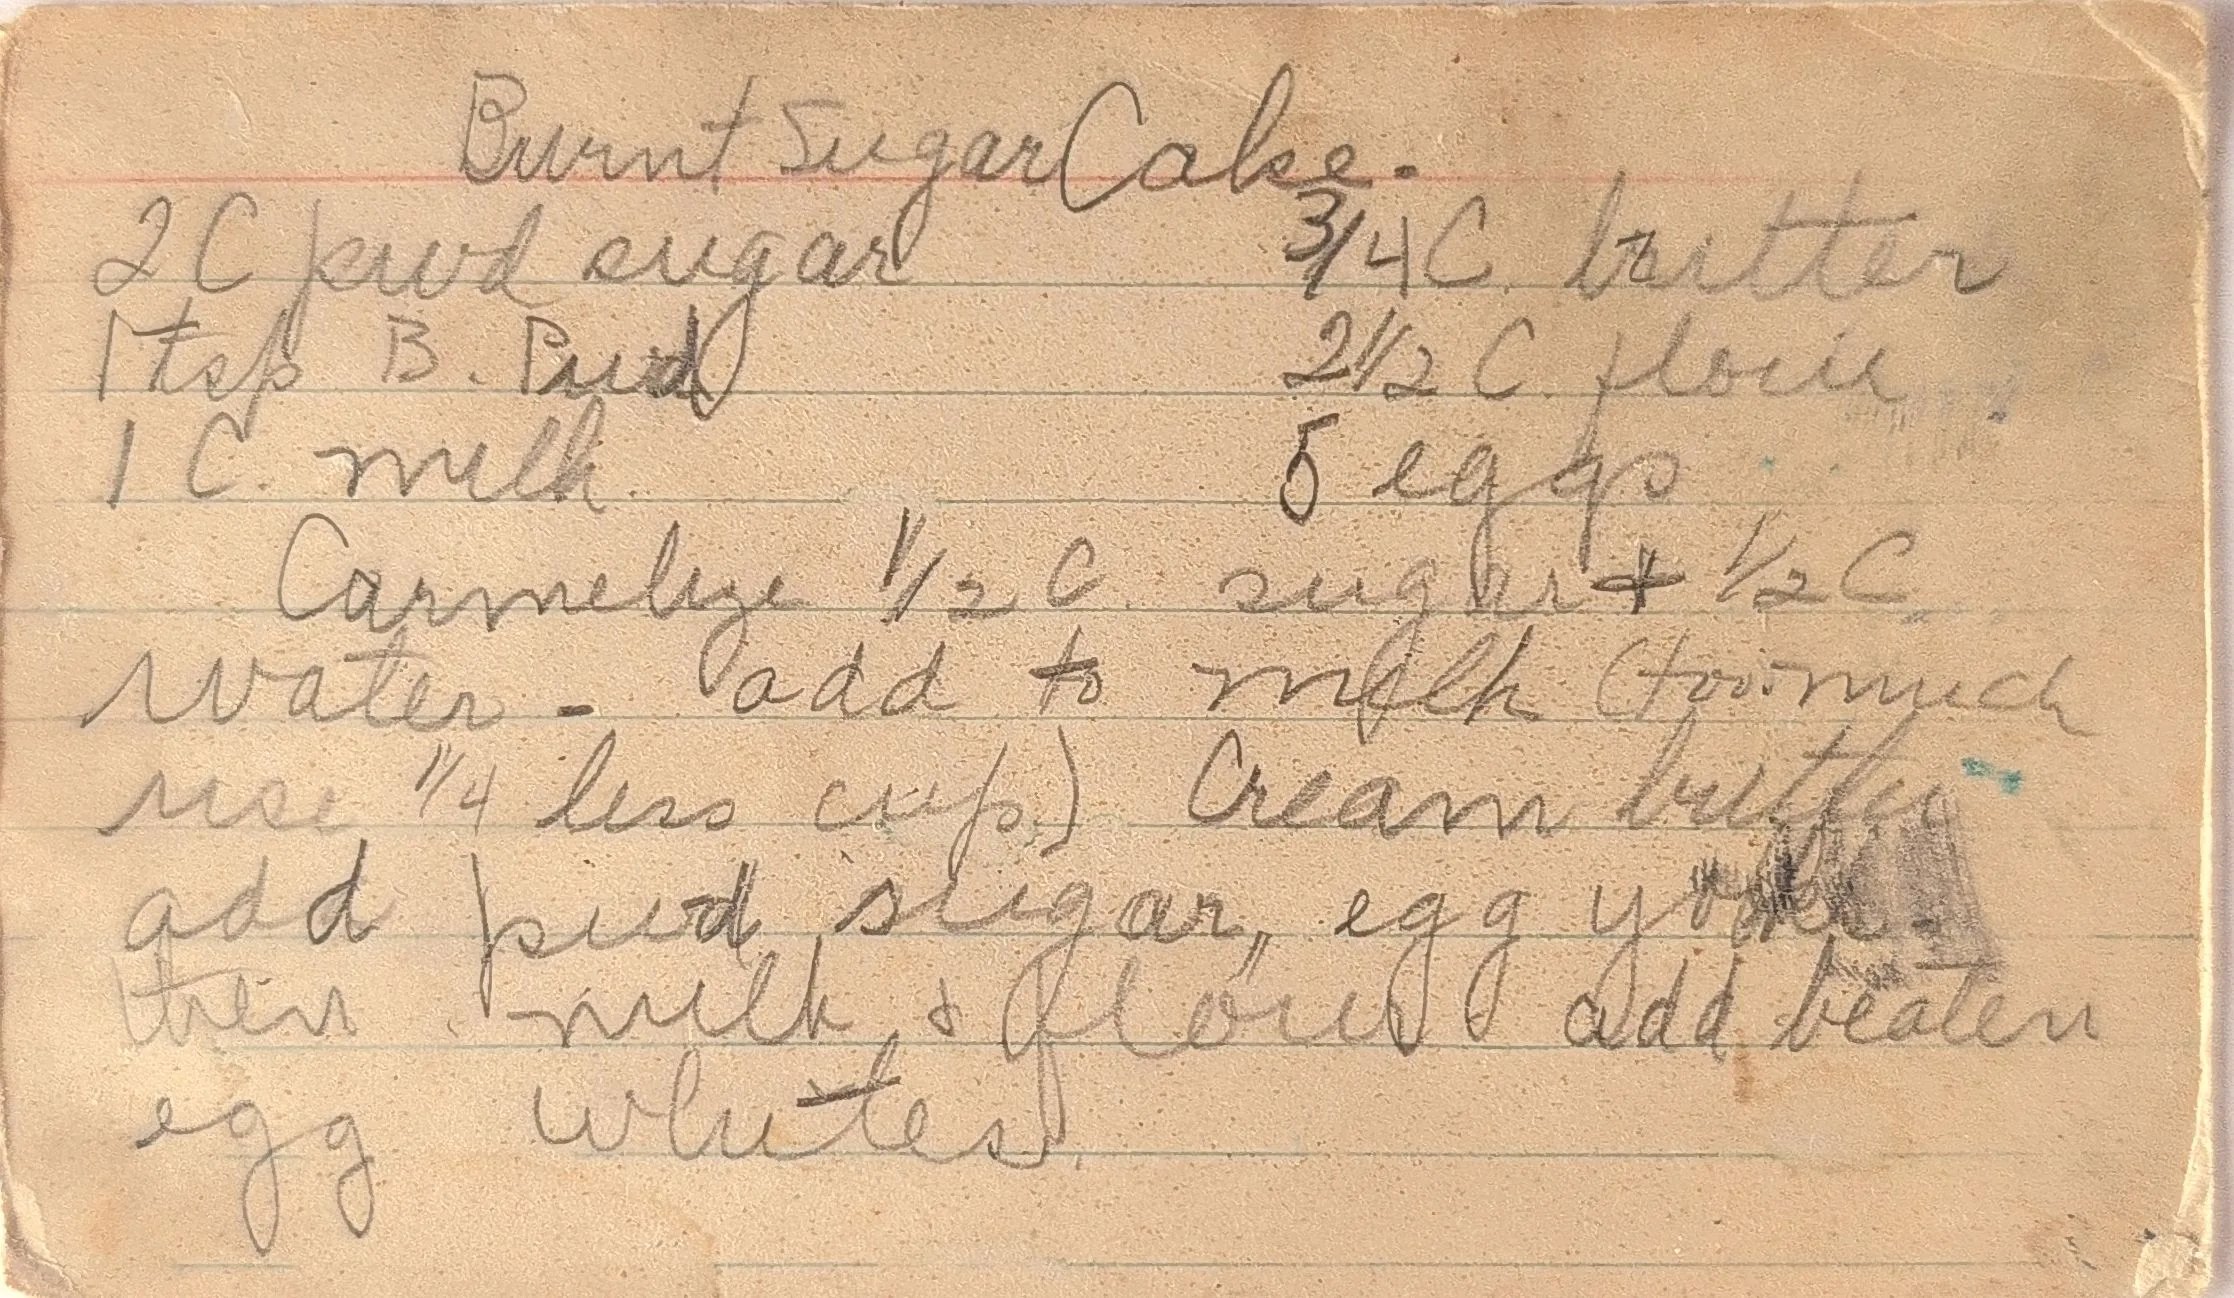 Burnt Sugar Cake.
2 C pwd sugar 3/4 C. butter
1 tsp B. Pwd 2 1/2 C. flour
1 C. milk. 5 eggs
Carmelize 1/2 C. sugar + 1/2 C.
water - add to milk (too much
use 1/4 less cup) Cream butter
add pwd sugar, egg yolks.
then milk & flour add beaten
egg whites.